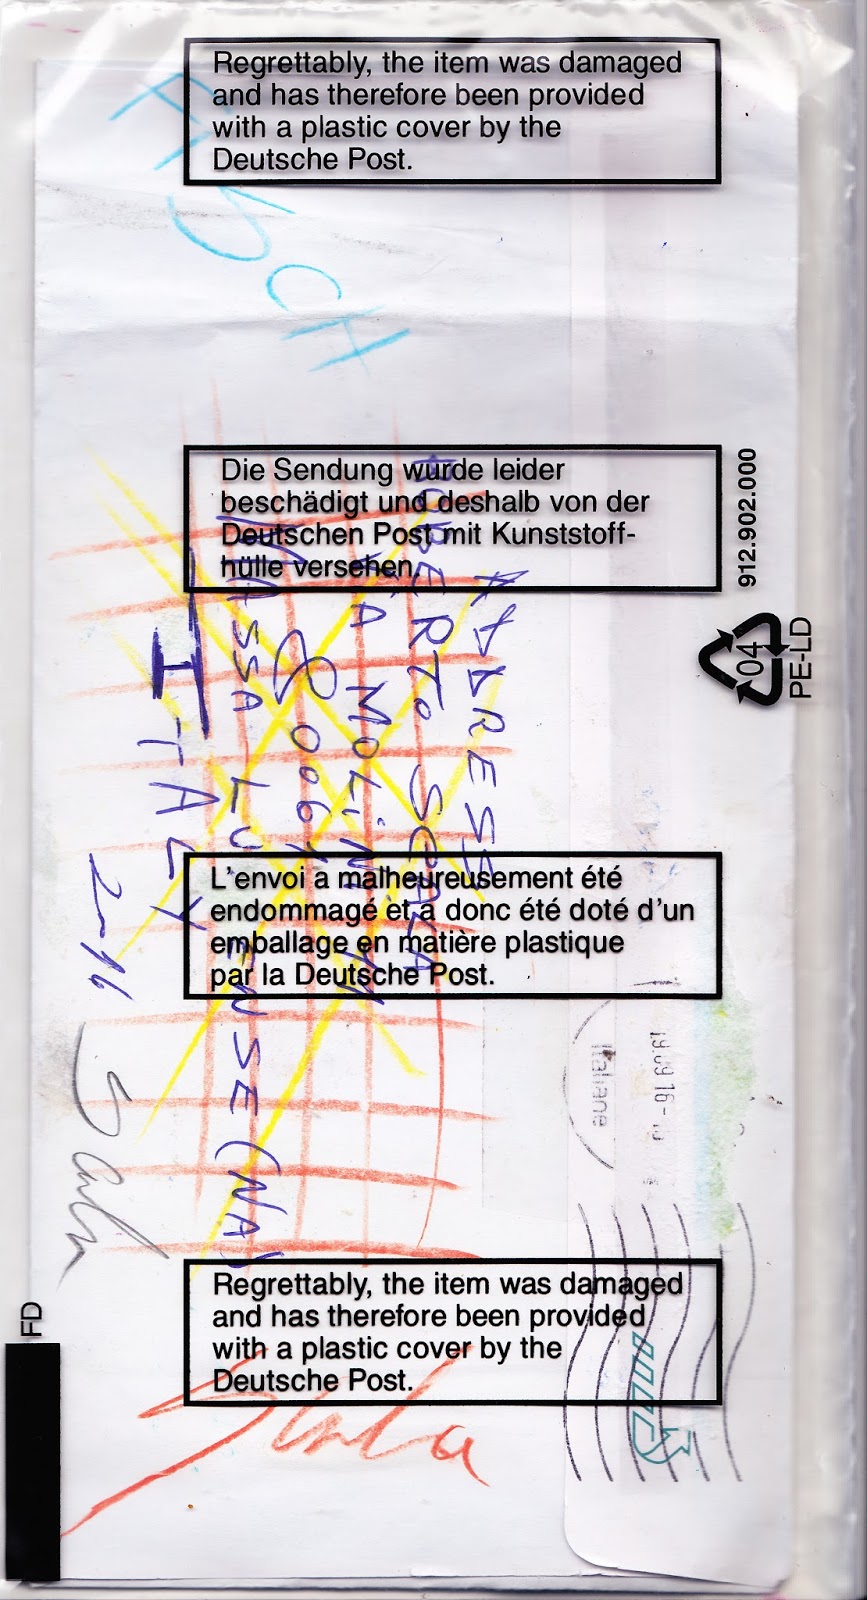 Regrettably, the item was damaged
and has therefore been provided
with a plastic cover by the
Deutsche Post.
Die Sendung wurde leider
beschädigt und deshalb von der
Deutschen Post mit Kunststoff-
hülle versehen.
912.902.000
04
PE-LD
L'envoi a malheureusement été
endommagé et a donc été doté d'un
emballage en matière plastique
par la Deutsche Post.
Regrettably, the item was damaged
and has therefore been provided
with a plastic cover by the
Deutsche Post.
FD
ADDRESS
ROBERTO SCALA
MOLINI
80061
MASSA LUBRENSE (NA)
ITALY
2016
Scala
Scala
Italiane